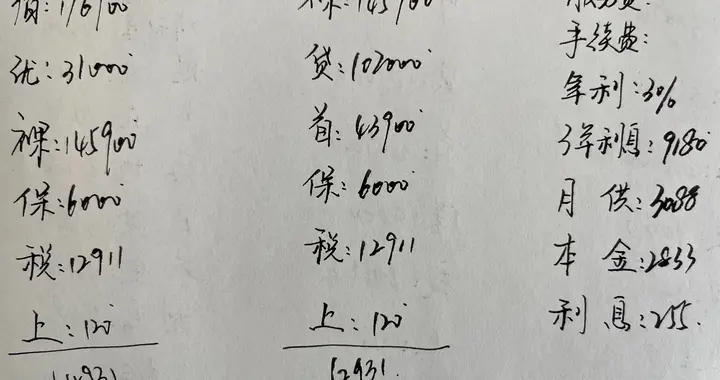 优:31000
裸:145900
保:6000
税:12911
上:120
裸:145900
贷:102000
首:43900
保:6000
税:12911
上:120
服务费:
手续费:
年利:3%
3年利息:9180
月供:3088
本金:2833
利息:255.